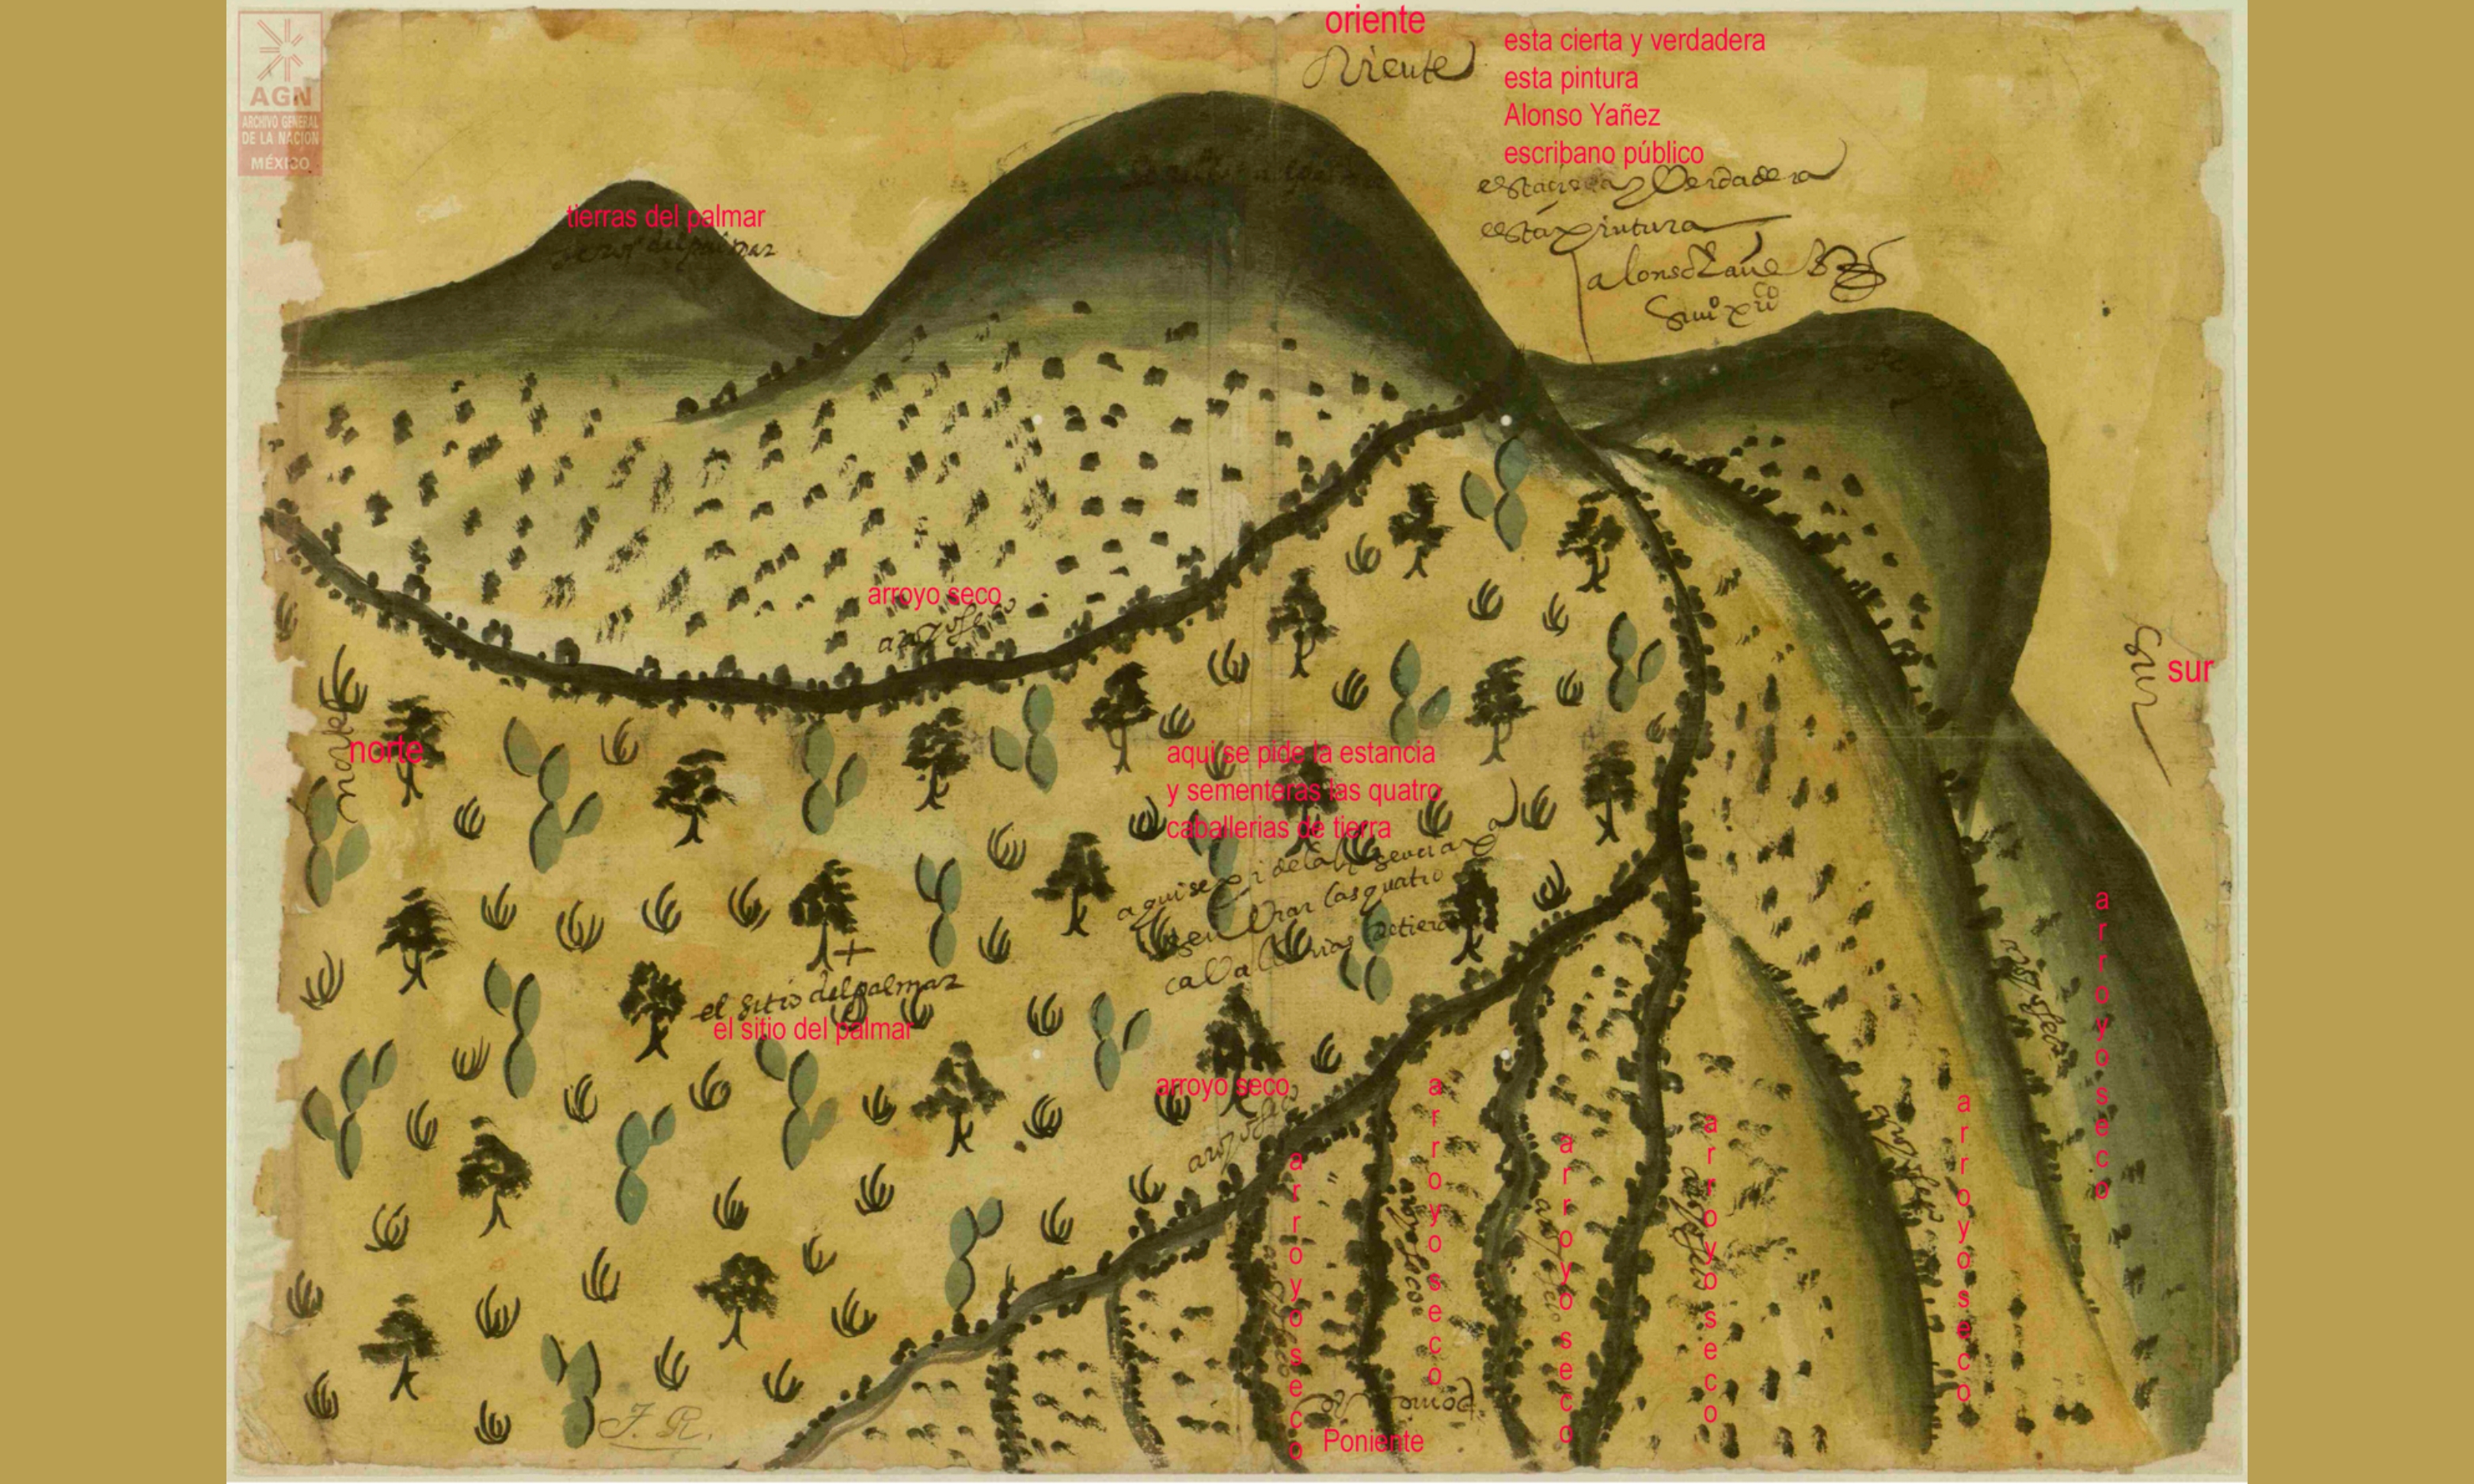 AGN
ARCHIVO GENERAL
DE LA NACION
MÉXICO
oriente
Oriente
esta cierta y verdadera
esta pintura
Alonso Yañez
escribano público
esta cierta y Verdadera
esta pintura
alonso Yañes
tierras del palmar
del palmar
arroyo seco
aroyo seco
sur
Sur
norte
norte
aqui se pide la estancia
y sementeras las quatro
caballerias de tierra
aqui se pide la
las quatro
cavallerias de tierra
el sitio del palmar
el sitio del palmar
arroyo seco
aroyo seco
arroyo seco
arroyo seco
aroyo seco
arroyo seco
aroyo seco
arroyo seco
aroyo seco
arroyo seco
aroyo seco
arroyo seco
aroyo seco
Poniente
J. R.